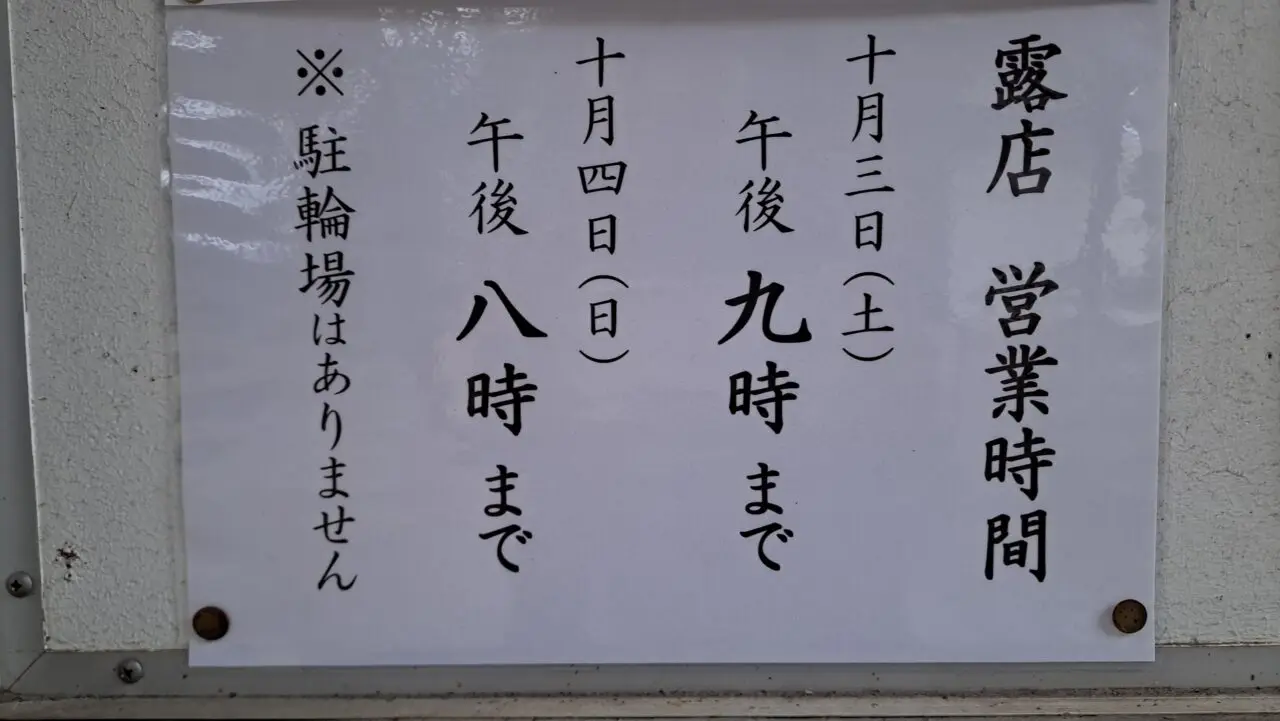 露店　営業時間
十月三日（土）
午後 九時 まで
十月四日（日）
午後 八時 まで
※ 駐輪場はありません